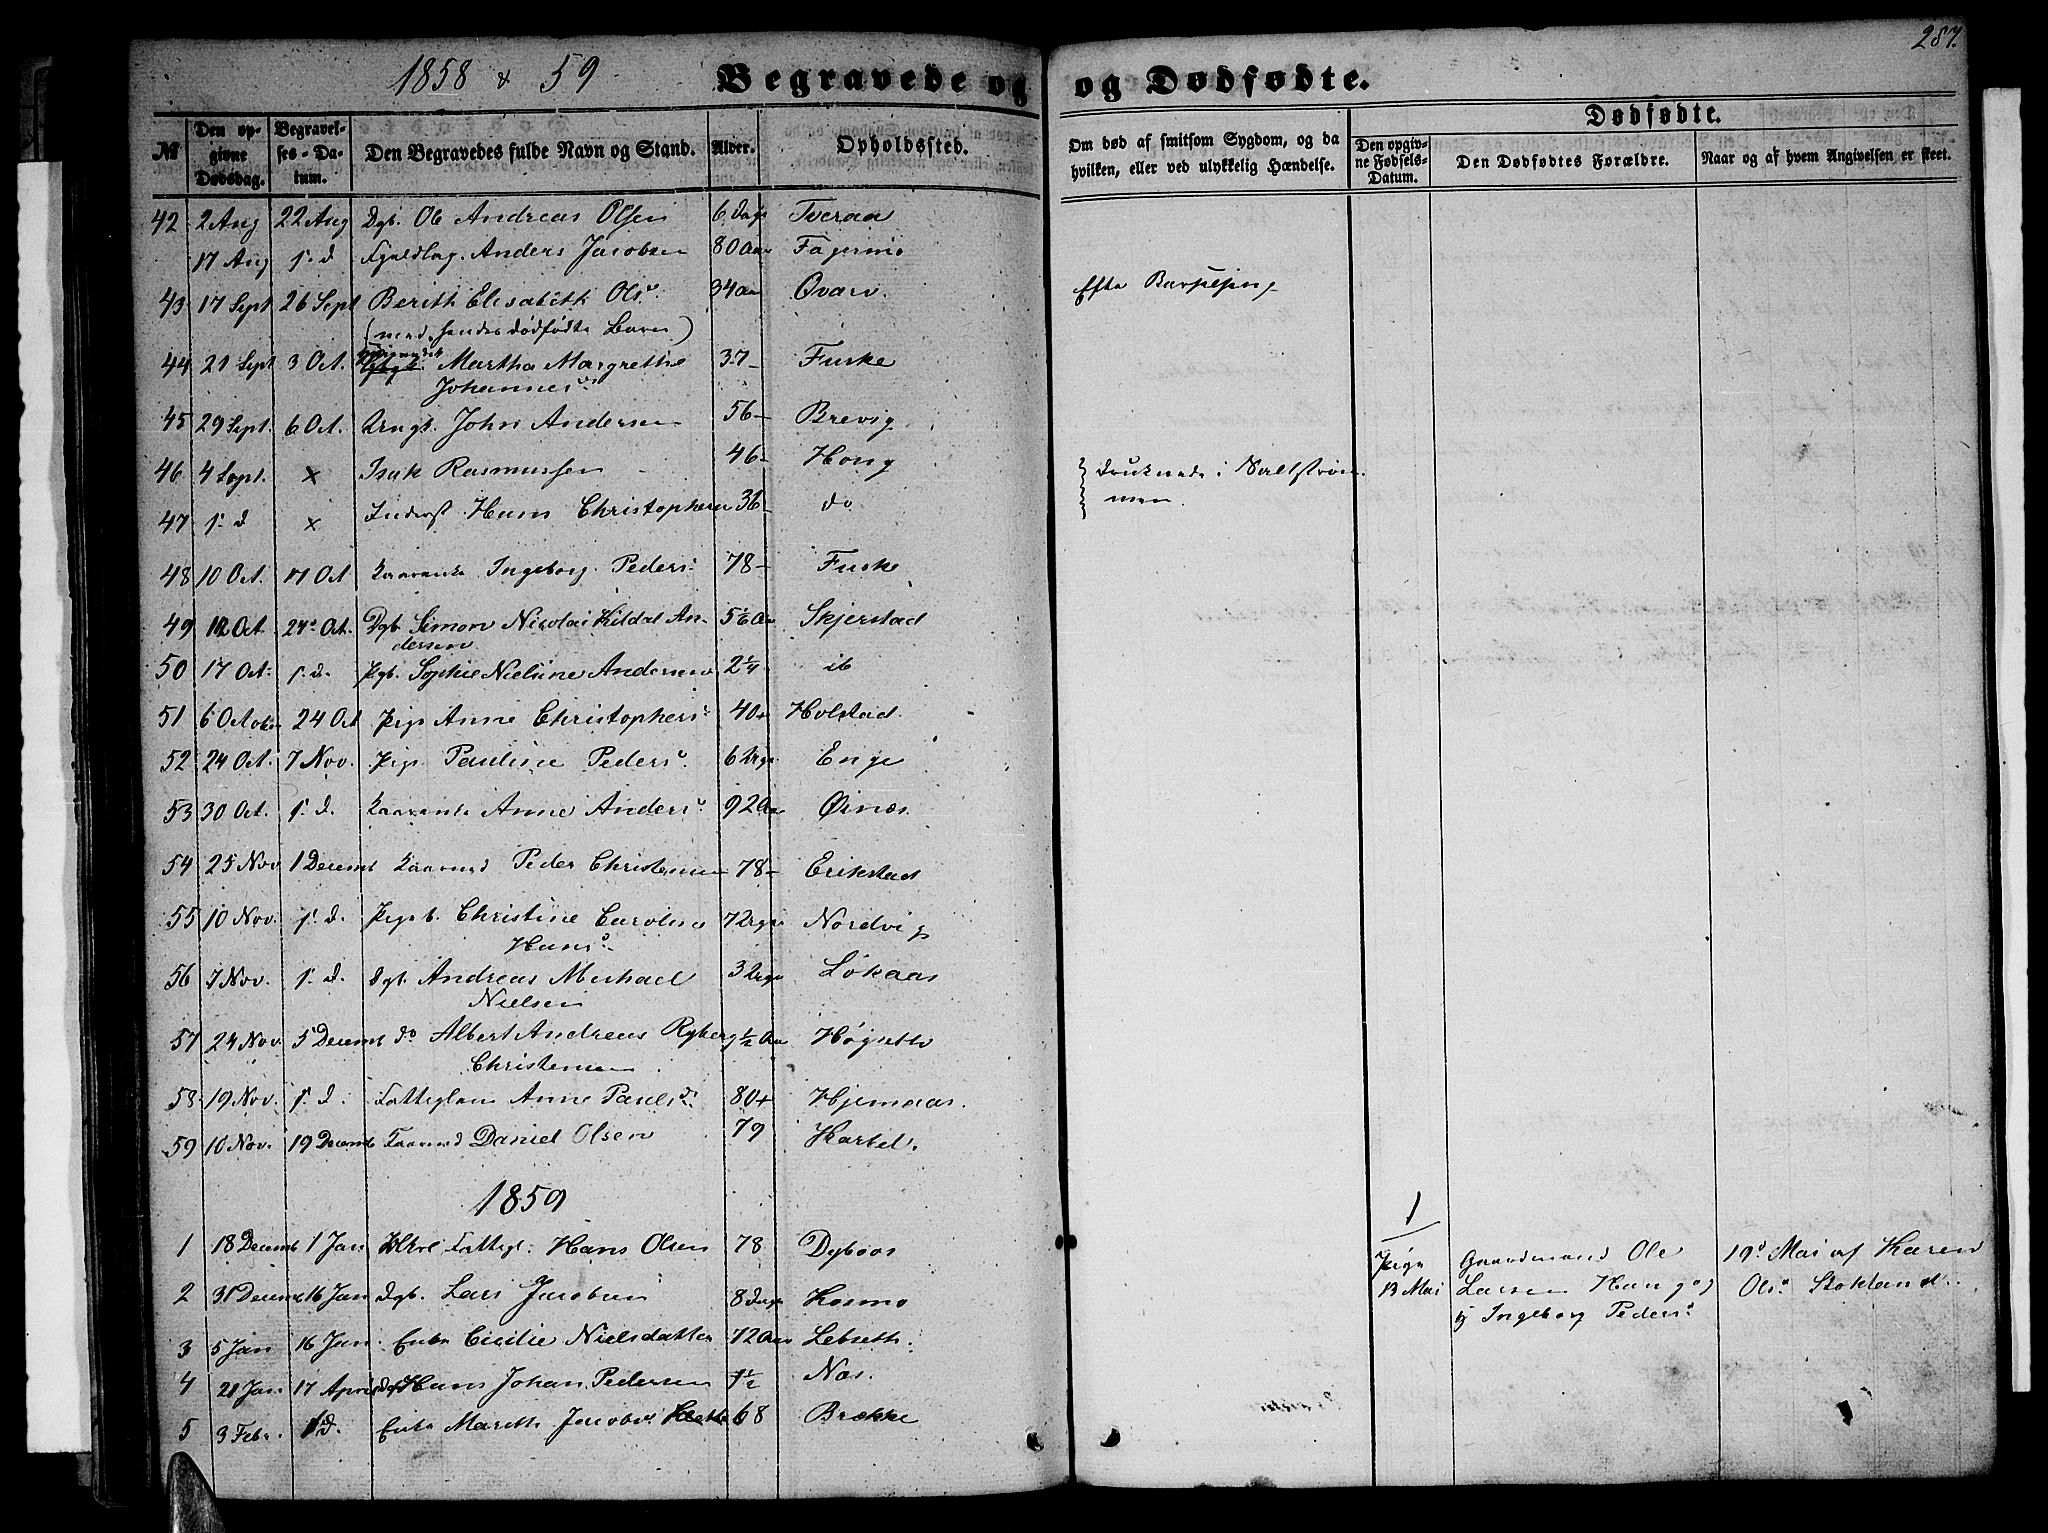 287.
1858 & 59
Begravede og
og Dødfødte.
№
Den opgivne Dødsdag.
Begravelses-Datum.
Den Begravedes fulde Navn og Stand.
Alder.
Opholdssted.
Om død af smitsom Sygdom, og da hvilken, eller ved ulykkelig Hændelse.
Dødfødte.
Den opgivne Fødsels-Datum.
Den Dødfødtes Forældre.
Naar og af hvem Angivelsen er skeet.
42 2 Aug 22 Aug Dgb. Ole Andreas Olsen 6 Dage Tveraa
17 Aug s. d Anders Jacobsen 80 Aar Fagermo
43 17 Sept 26 Sept Berith Elisabeth Olsd. 34 Aar Øvare
(med hendes dødfødte Barn)
44 21 Sept 3 Oct. Martha Margrethe 37 Fuske
Johannesd.
45 29 Sept. 6 Oct. John Andersen 56 Brevig
46 4 Sept. x Isak Rasmussen 46 Hong
Druknede i Saltstrøm
47 s. d x Inderst Hans Christophersen 36 do
men.
48 10 Oct. 17 Oct Ingeborg Pedersd. 78 Fuske
49 12 Oct 24 Oct. Dgb. Simon Nicolai Kildal An-
dersen 5½ Aar Skjerstad
50 17 Oct. s. d. Pgb. Sophie Nielsine Andersen 2¼ ib
51 6 October 24 Oct Pige Anne Christophersd. 40 Holstad.
52 24 Oct. 7 Nov. Pige Pauline Pedersd. 6 Enge
53 30 Oct. s. d. Anne Andersd. 92 Aar Øinæs.
54 25 Nov 1 Decemb Peder Christensen 78 Erikstad
55 10 Nov. s. d. Pigeb. Christine Caroline 7 Nordvig
Hansd.
56 7 Nov. s. d. Dgb. Andreas Michael 3 Løkaas
Nielsen
57 24 Nov. 5 Decemb do Albert Andreas Ryberg ½ Aar Høgseth
Christensen
58 19 Nov. s. d. Fattiglem Anne Paulsd. 80 Hjemaas.
59 10 Nov. 19 Decemb Daniel Olsen 79
1859
1 18 Decemb 1 Jan Fattigl. Hans Olsen 78 Dybaas
2 31 Decemb 16 Jan Dgb. Lars Jacobsen 8 Dage Kosmo
3 5 Jan 16 Jan. Enke Cicilie Nielsdatter 72 Aar Lebseth.
4 21 Jan 17 April Hans Johan Pedersen ½ Næs.
5 3 Febr. s. D. Enke Mareth Jacobsd. 68 Brække
1
Pige
13 Mai
Gaardmand Ole
Larsen Haug og
Ingeborg Pedersd.
19de Mai af Karen
Olsd. Stokland.